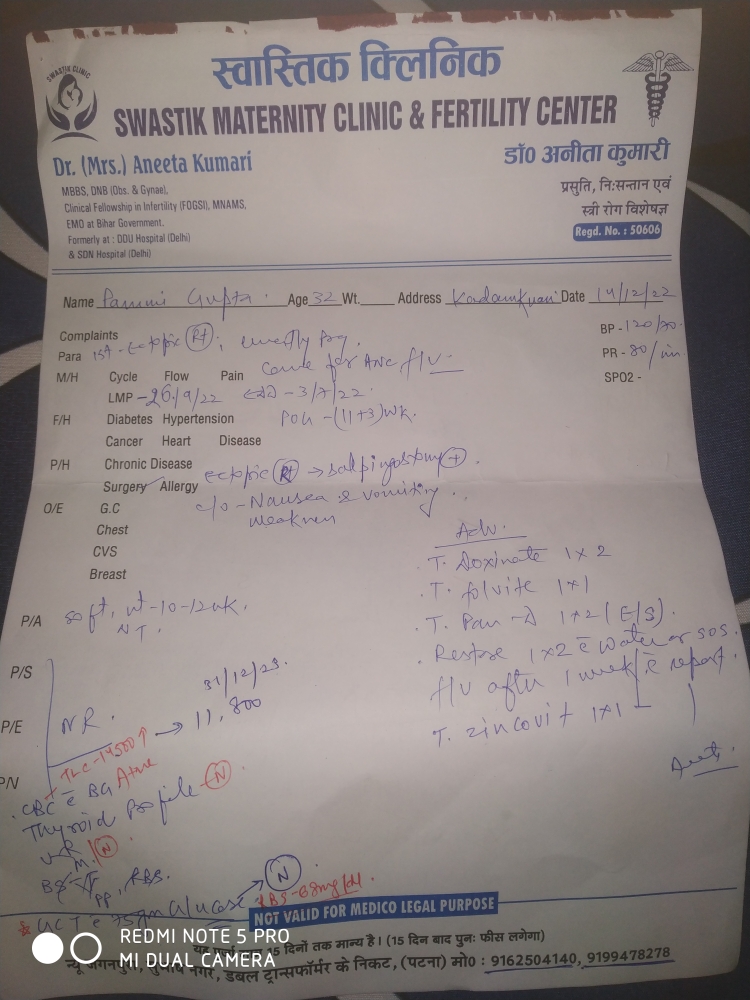 स्वास्तिक क्लिनिक
SWASTIK CLINIC
SWASTIK MATERNITY CLINIC & FERTILITY CENTER
Dr. (Mrs.) Aneeta Kumari
MBBS, DNB (Obs. & Gynae),
Clinical Fellowship in Infertility (FOGSI), MNAMS,
EMO at Bihar Government.
Formerly at : DDU Hospital (Delhi)
& SDN Hospital (Delhi)
डॉ0 अनीता कुमारी
प्रसुति, नि:सन्तान एवं
स्त्री रोग विशेषज्ञ
Regd. No. : 50606
Name Pammi Gupta. Age 32 Wt. Address Kadamkuan Date 14/12/22
Complaints BP - 120/70
Para 1st - Ectopic Rt; PR - 80/min
M/H Cycle Flow Pain came for ANC f/u. SPO2 -
LMP - 26/9/22 EDD - 3/7/22
F/H Diabetes Hypertension POG - (11+3) wk.
Cancer Heart Disease
P/H Chronic Disease ectopic Rt → salpingostomy +.
Surgery Allergy
O/E G.C c/o - Nausea & vomiting
weakness
Chest
CVS
Breast
P/A soft, ut - 10-12 wk.
NT.
P/S
P/E NR.
P/N
31/12/23.
TLC - 14500 ↑ → 11,800
CBC c̄ BG A+ve
Thyroid Profile - N
UR/M. N
BS-F/PP, RBS.
GCT c̄ 75gm Glucose → N
RBS - 68mg/dl.
Adv.
. T. Doxinate 1 x 2
. T. folvite 1x1
. T. Pan-D 1x2 (E/S).
. Restose 1x2 c̄ water or SOS.
f/u after 1 week c̄ report.
T. zincovit 1x1
NOT VALID FOR MEDICO LEGAL PURPOSE
15 दिनों तक मान्य है। (15 दिन बाद पुन: फीस लगेगा)
न्यू जगनपुरा, सुभाष नगर, डबल ट्रान्सफॉर्मर के निकट, (पटना) मो0 : 9162504140, 9199478278
REDMI NOTE 5 PRO
MI DUAL CAMERA